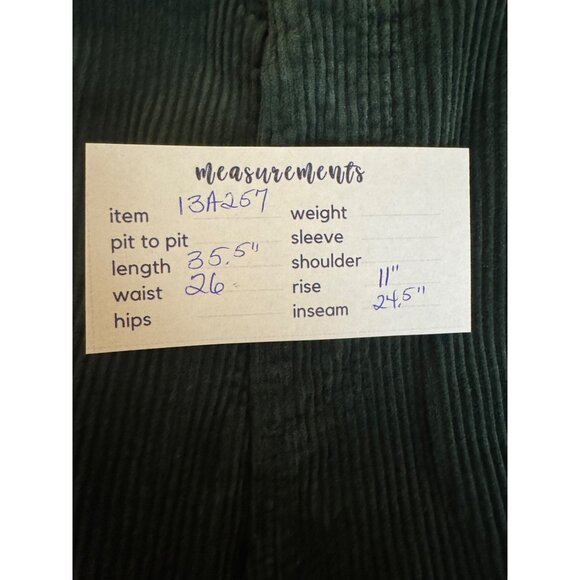 measurements
item 13A257
pit to pit
length 35.5"
waist 26
hips
weight
sleeve
shoulder
rise 11"
inseam 24.5"